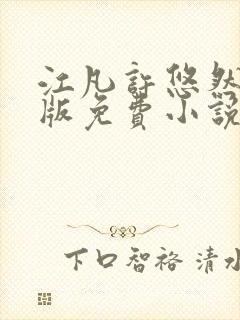 江凡許悠然
版免費小說
下口智裕 清水